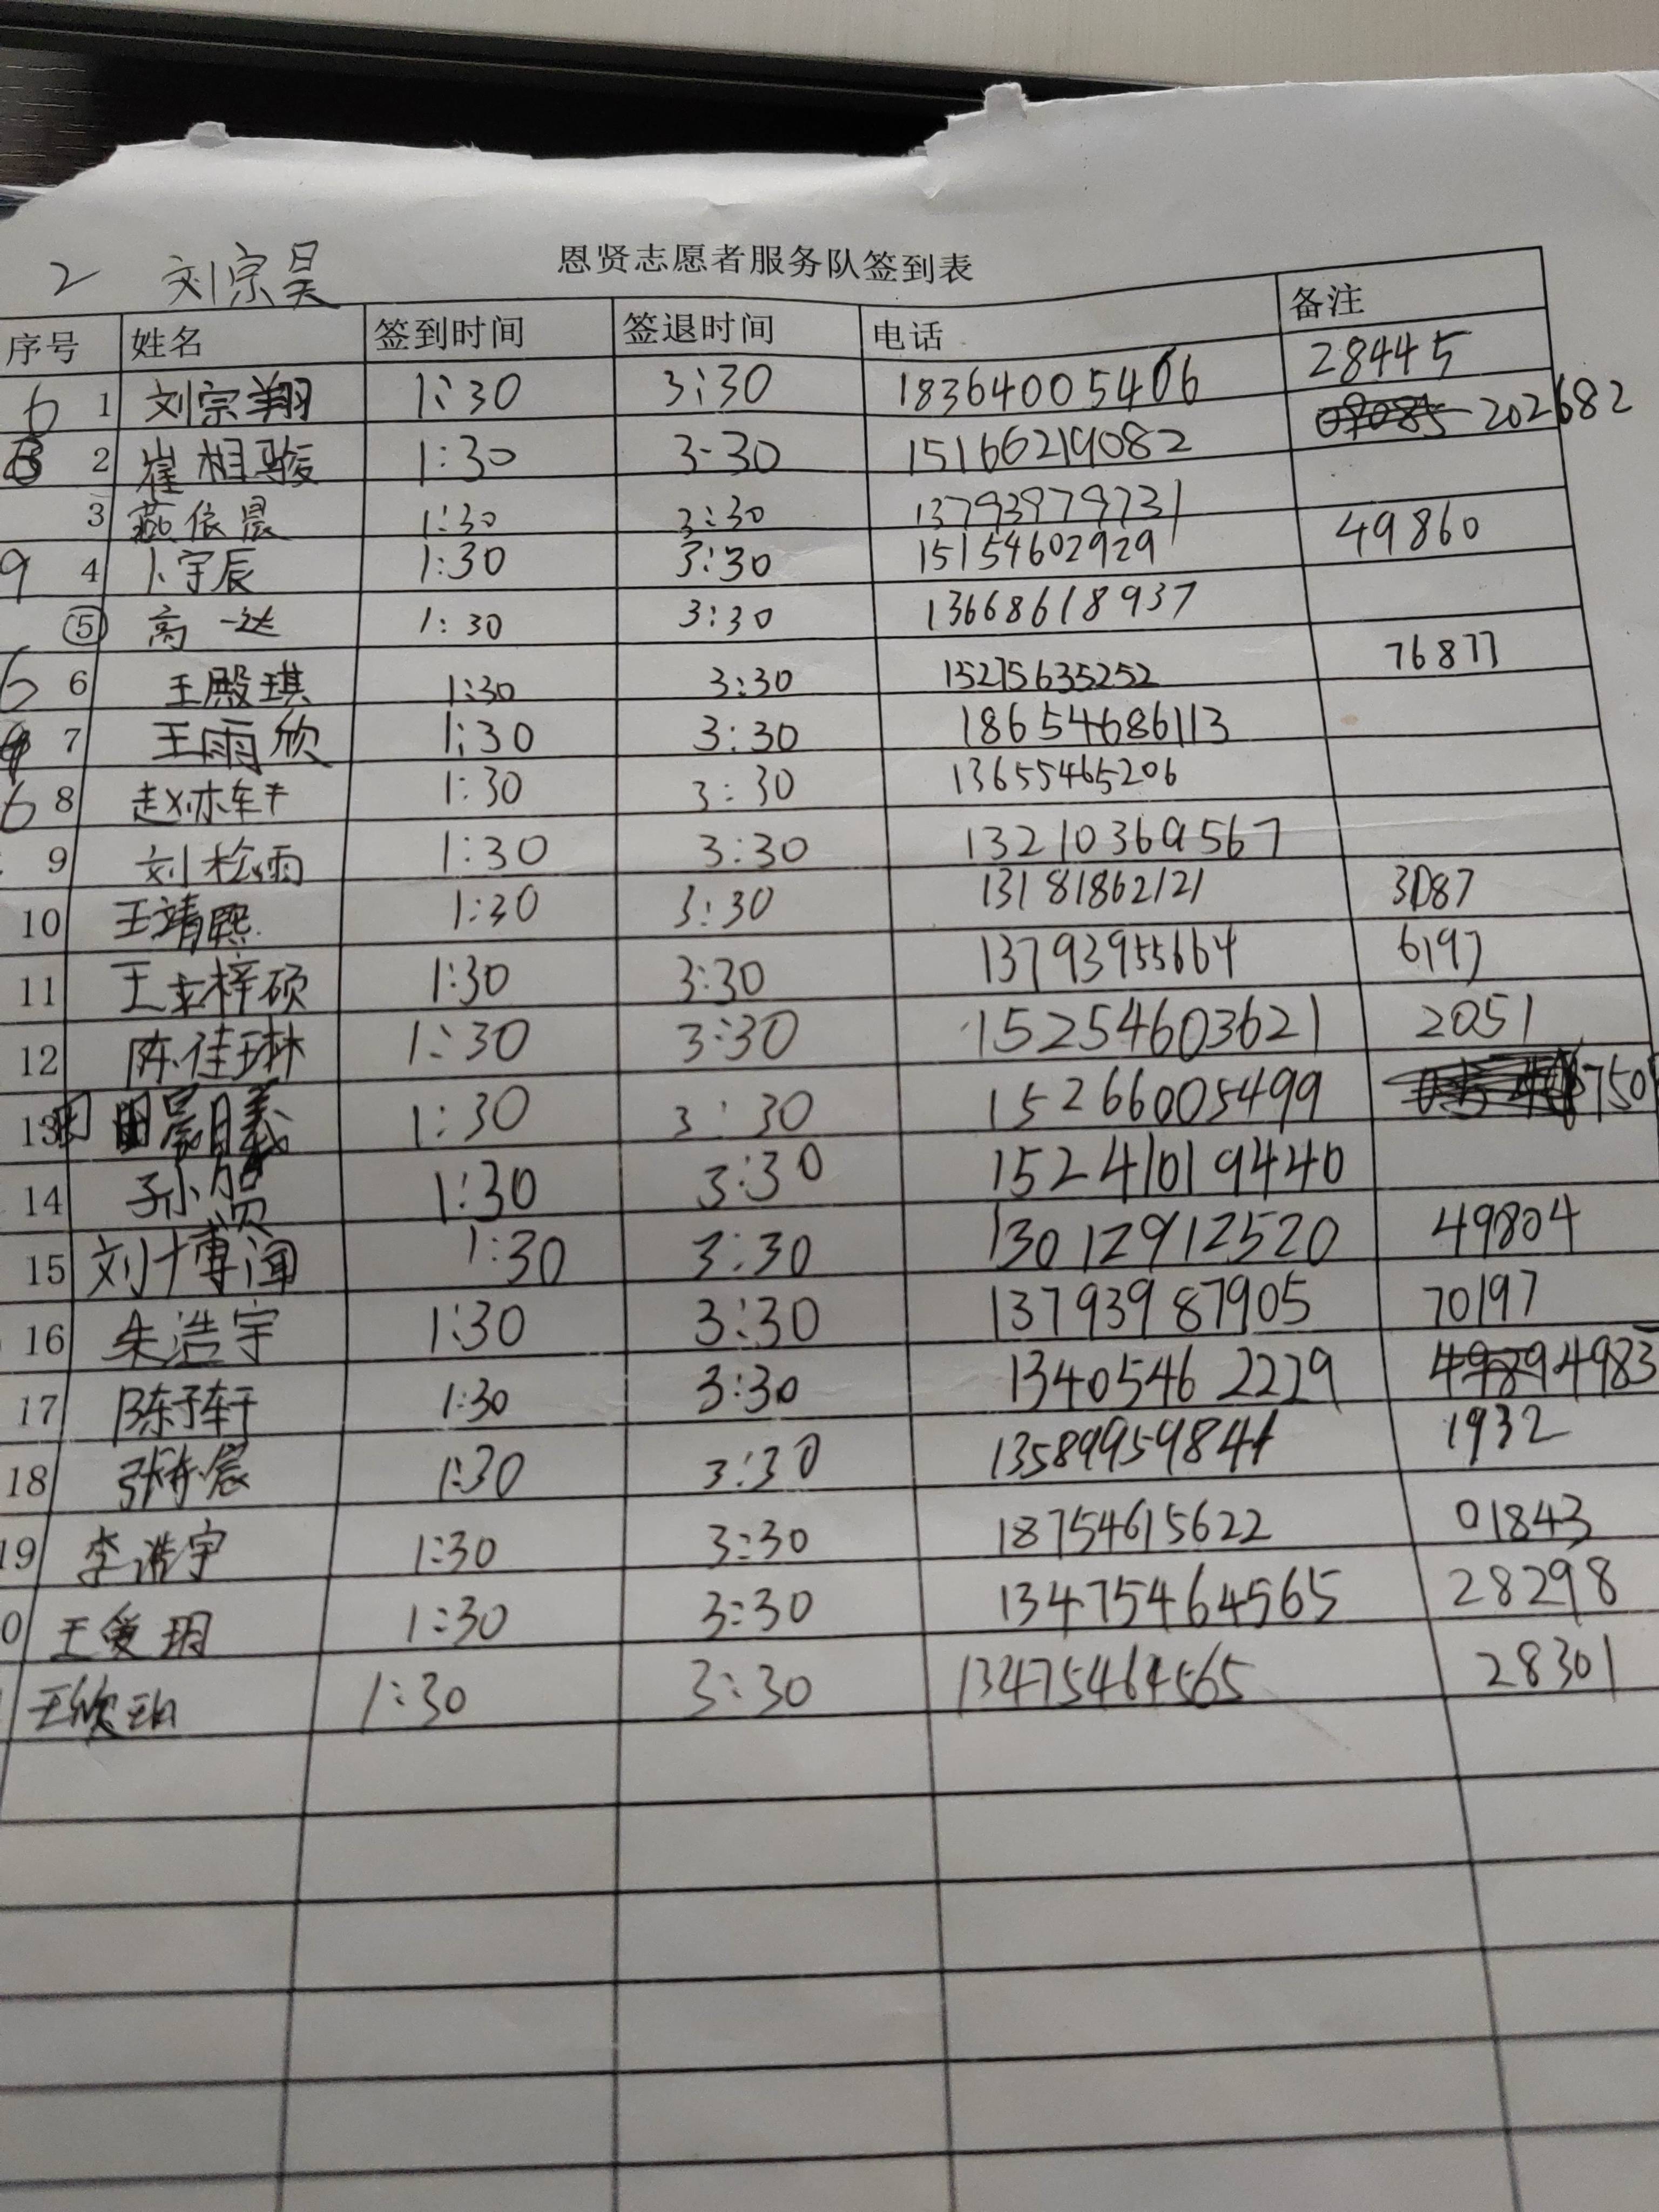 恩贤志愿者服务队签到表
2 刘宗昊
序号 姓名 签到时间 签退时间 电话 备注
6 1 刘宗翔 1:30 3:30 18364005406 28445
2 崔相骏 1:30 3:30 15166219082 202682
3 燕依晨 1:30 3:30 13793979731
9 4 卜宇辰 1:30 3:30 15154602929 49860
5 高一达 1:30 3:30 13668618937
6 王殿琪 1:30 3:30 15275635252 76877
7 王雨欣 1:30 3:30 18654686113
6 8 1:30 3:30 13655465206
9 刘松雨 1:30 3:30 13210369567
10 王靖熙 1:30 3:30 13181862121 3087
11 王梓硕 1:30 3:30 13793955664 6197
12 陈佳琳 1:30 3:30 15254603621 2051
13 1:30 3:30 15266005499 750
14 孙 1:30 3:30 15241019440
15 刘博闻 1:30 3:30 13012912520 49804
16 朱浩宇 1:30 3:30 13793987905 70197
17 陈子轩 1:30 3:30 13405462229 4983
18 1:30 3:30 13589959841 1932
19 李浩宇 1:30 3:30 18754615622 01843
0 王爱玥 1:30 3:30 13475464565 28298
王欣玥 1:30 3:30 13475464565 28301